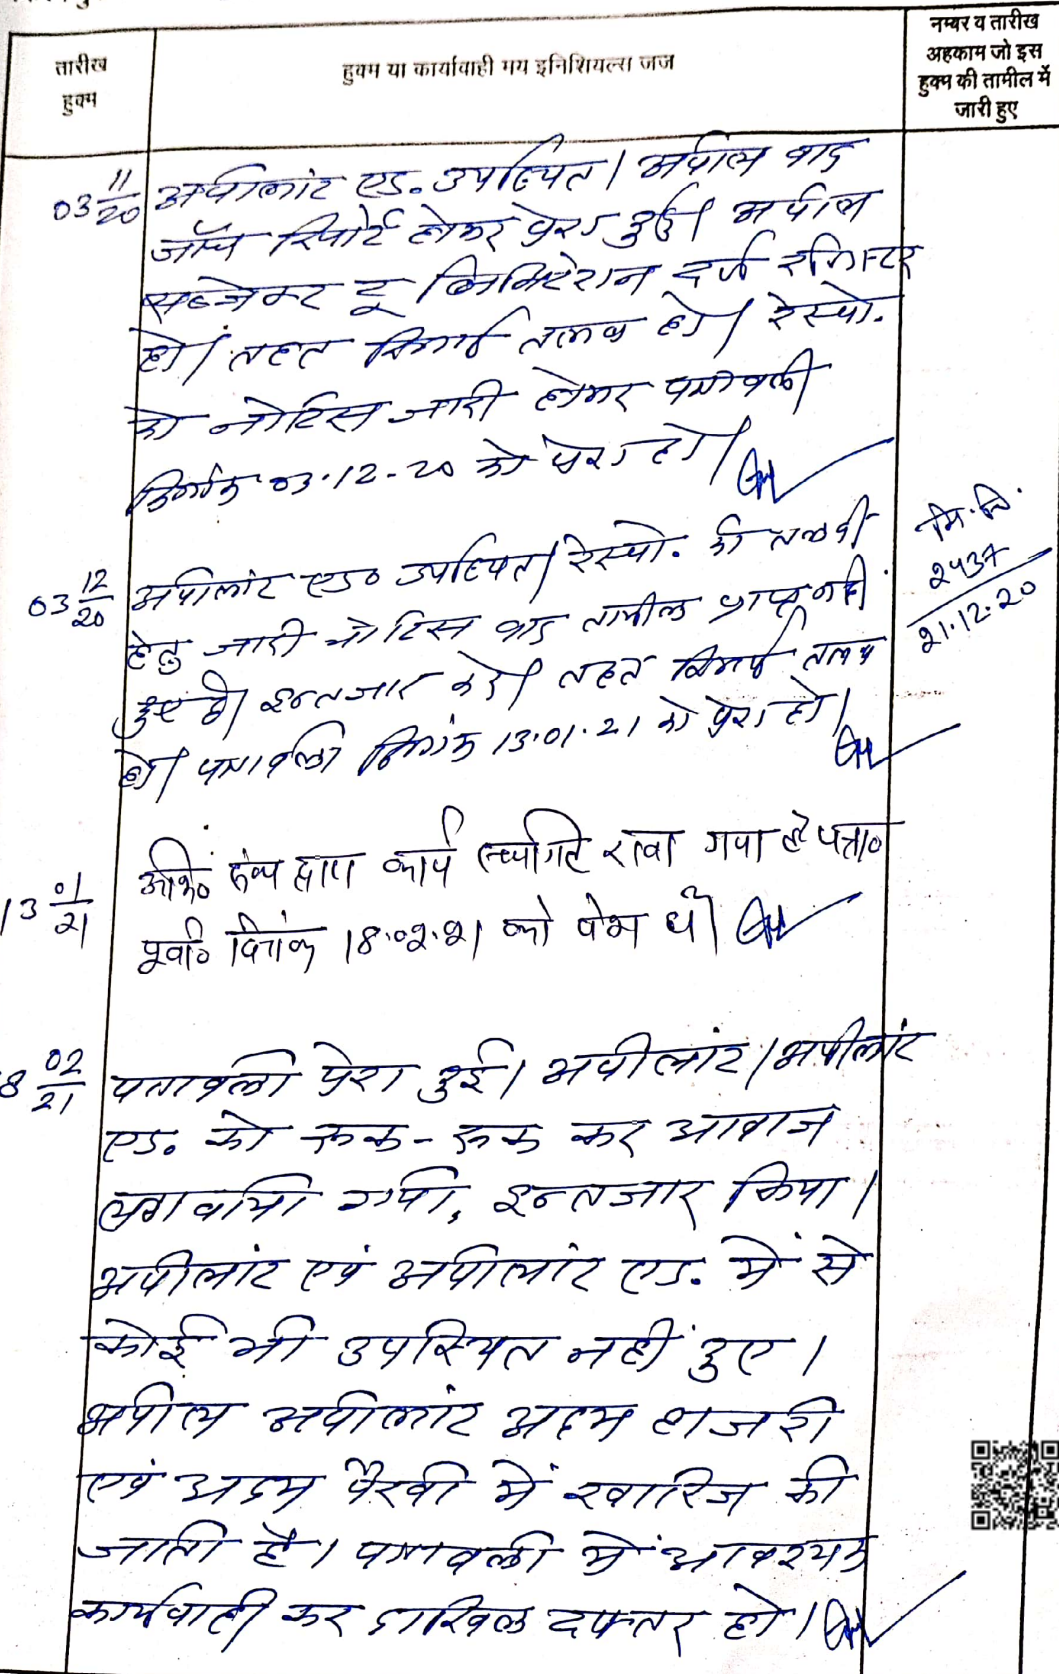 तारीख
हुक्म
हुक्म या कार्यवाही मय इनिशियल्स जज
नम्बर व तारीख
अहकाम जो इस
हुक्म की तामील में
जारी हुए
03 11/20 अपीलांट एड. उपस्थित। अपील बाद
जाँच रिपोर्ट होकर पेश हुई। अपील
सब्जेक्ट टू लिमिटेशन दर्ज रजिस्टर
हो। तहत रिकार्ड तलब हो। रेस्पो.
को नोटिस जारी होकर पत्रावली
दिनांक 03.12.20 को पेश हो।
03 12/20 अपीलांट एड० उपस्थित। रेस्पो. की तलबी
हेतु जारी नोटिस बाद तामील प्राप्त नहीं
हुए है। इन्तजार करे। तहत रिकार्ड तलब
हो। पत्रावली दिनांक 13.01.21 को पेश हो।
2437
21.12.20
13 01/21 द्वारा कार्य स्थगित रखा गया है पत्रा०
पूर्वा० दिनांक 18.02.21 को पेश हो।
8 02/21 पत्रावली पेश हुई। अपीलांट/अपीलांट
एड. को रूक-रूक कर आवाज
लगवायी गयी, इन्तजार किया।
अपीलांट एवं अपीलांट एड. में से
कोई भी उपस्थित नहीं हुए।
अपील अपीलांट अदम हाजरी
एवं अदम पैरवी में खारिज की
जाती है। पत्रावली में आवश्यक
कार्यवाही कर दाखिल दफ्तर हो।